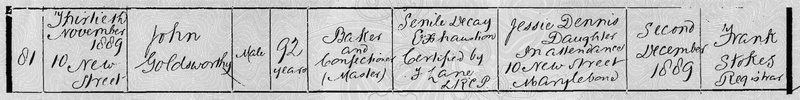 81
Thirtieth
November
1889
10 New
Street
John
Goldsworthy
Male
92
years
Baker
and
Confectioner
(Master)
Senile Decay
Exhaustion
Certified by
F Lane
LRCP
Jessie Dennis
Daughter
In attendance
10 New Street
Marylebone
Second
December
1889
Frank
Stokes
Registrar